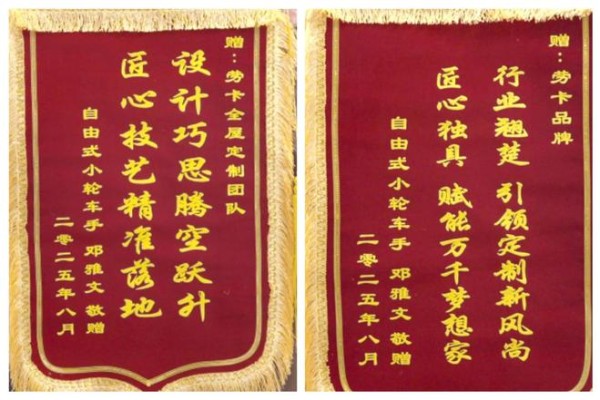 赠：劳卡全屋定制团队
设计巧思腾空跃升
匠心技艺精准落地
自由式小轮车手 邓雅文 敬赠
二零二五年八月
赠：劳卡品牌
行业翘楚 引领定制新风尚
匠心独具 赋能万千梦想家
自由式小轮车手 邓雅文 敬赠
二零二五年八月